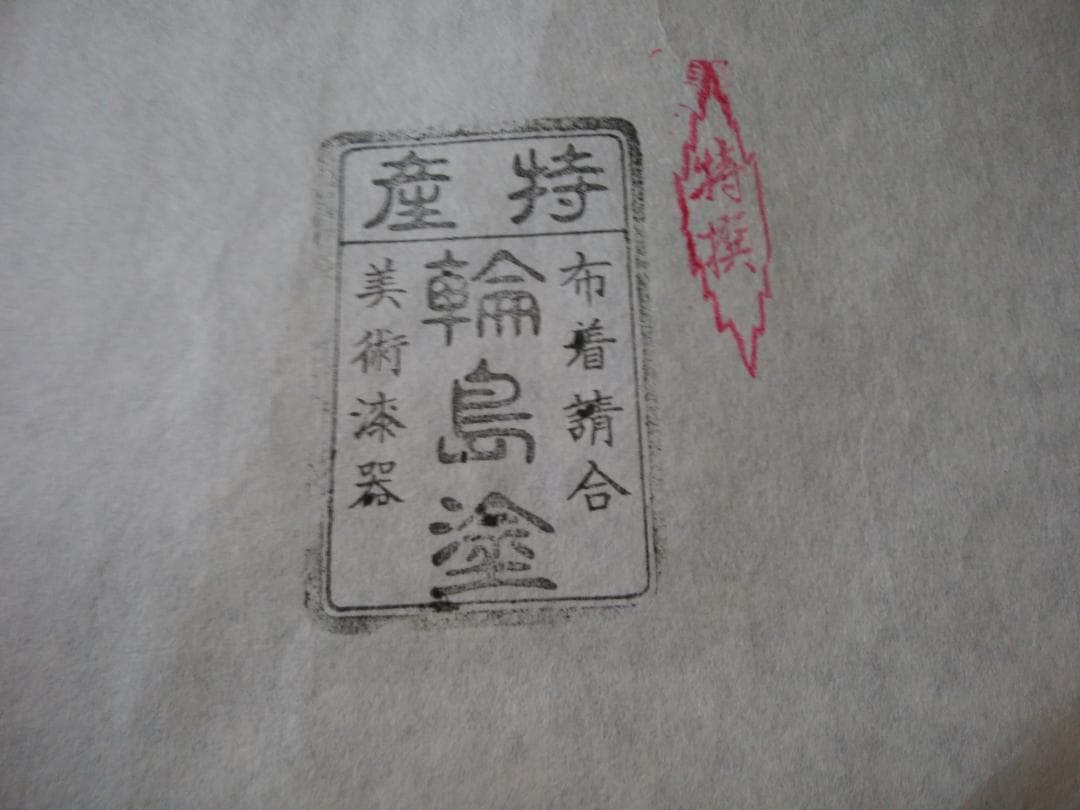 特産
布着請合
輪島塗
美術漆器
特撰